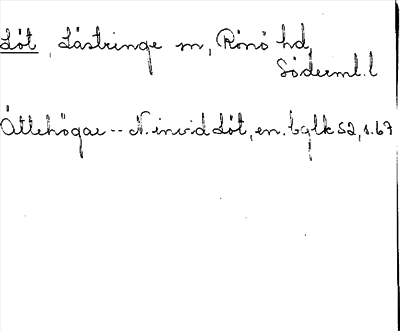 Löt, Lästringe sn, Rönö hd,
Söderml. l
Ättehögar -- N. invid Löt, en. bglk S2, s. 67